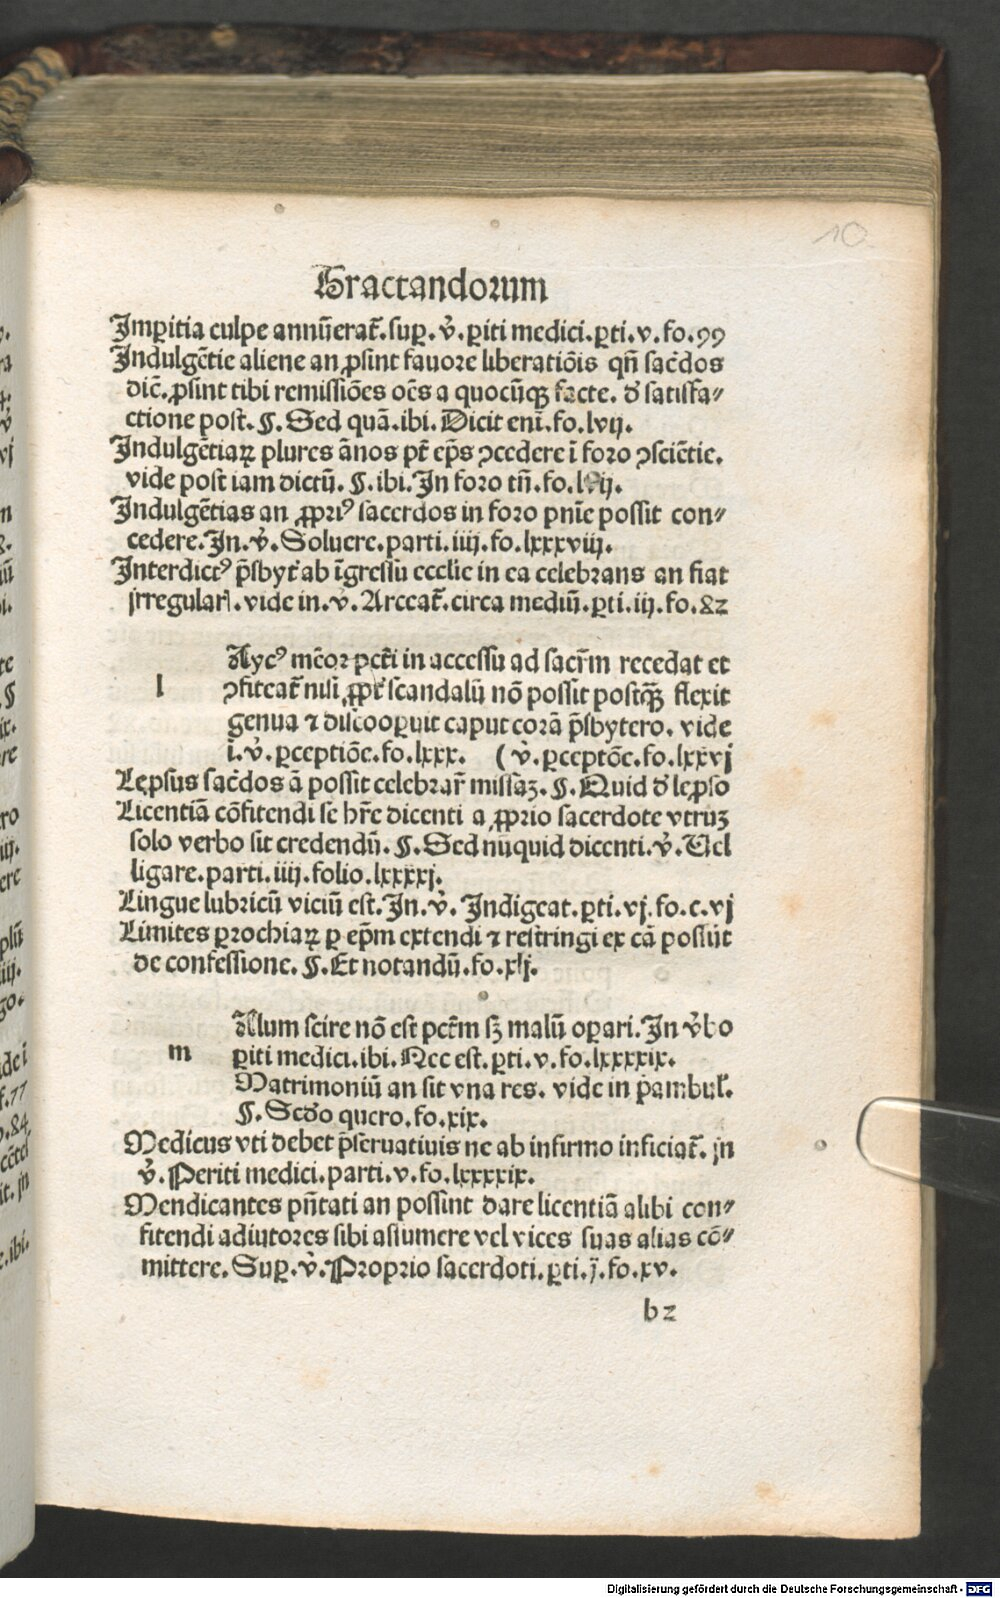 10
Tractandorum
Imꝑitia culpe annūerat᷑.suꝑ.v̓.ꝑiti medici.ꝑti.v.fo.99
Indulgētie aliene an ꝓsint fauore liberatiōis qn̄ sac̄dos
dic̄.ꝓsint tibi remissiōes oēs a quocūqꝫ facte. ꝺ̓ satisfa⸗
ctione post᷑.¶.Sed quā.ibi.Dicit enī.fo.lvij.
Indulgētiaꝝ plures ānos pt̄ ep̄s ꝯcedere ī foro ꝯsciētie.
vide post iam dictū.¶.ibi.In foro tn̄.fo.
Indulgētias an ꝓpriꝰ sacerdos in foro pn̄ie possit con⸗
cedere.In.v̓.Soluere.parti.iiij.fo.lxxxviij.
Interdictꝰ p̄sbyt᷑ ab īgressu ecclie in ea celebrans an fiat
irregular᷑.vide in.v̓.Arceat᷑.circa mediū.ꝑti.iij.fo.82
l
Aycꝰ mēor pct̄i in accessu ad sacr̄m recedat et
ꝯfiteat᷑ nisi ꝓpt᷑ scandalū nō possit postqꝫ̄ flexit
genua ⁊ discooꝑuit caput corā p̄sbytero. vide
i.v̓.ꝑceptiōe.fo.lxxx. (v̓.ꝑceptōe.fo.lxxvj
Lepsus sac̄dos ā possit celebrar᷑ missaꝫ.¶.Quid ꝺ̓ lepso
Licentiā cōfitendi se hr̄e dicenti a ꝓprio sacerdote vtruꝫ
solo verbo sit credendū.¶.Sed nūquid dicenti.v̓.Uel
ligare.parti.iiij.folio.lxxxxj.
Lingue lubricū viciū est.In.v̓.Indigeat.ꝑti.vj.fo.c.vj
Limites ꝑrochiaꝝ ꝑ ep̄m extendi ⁊ restringi ex cā possūt
de confessione.¶.Et notandū.fo.xlj.
m
Alum scire nō est pct̄m sꝫ malū oꝑari.In v̓bo
ꝑiti medici.ibi.Nec est.ꝑti.v.fo.lxxxxix.
Matrimoniū an sit vna res. vide in p̄ambul᷑.
¶.Scd̓o quero.fo.xix.
Medicus vti debet p̄seruatiuis ne ab infirmo inficiat᷑.in
v̓.Periti medici.parti.v.fo.lxxxxix.
Mendicantes pn̄tati an possint dare licentiā alibi con⸗
fitendi adiutores sibi assumere vel vices suas alias cō⸗
mittere.Suꝑ.v̓.Proprio sacerdoti.ꝑti.j.fo.xv.
b2
Digitalisierung gefördert durch die Deutsche Forschungsgemeinschaft - DFG